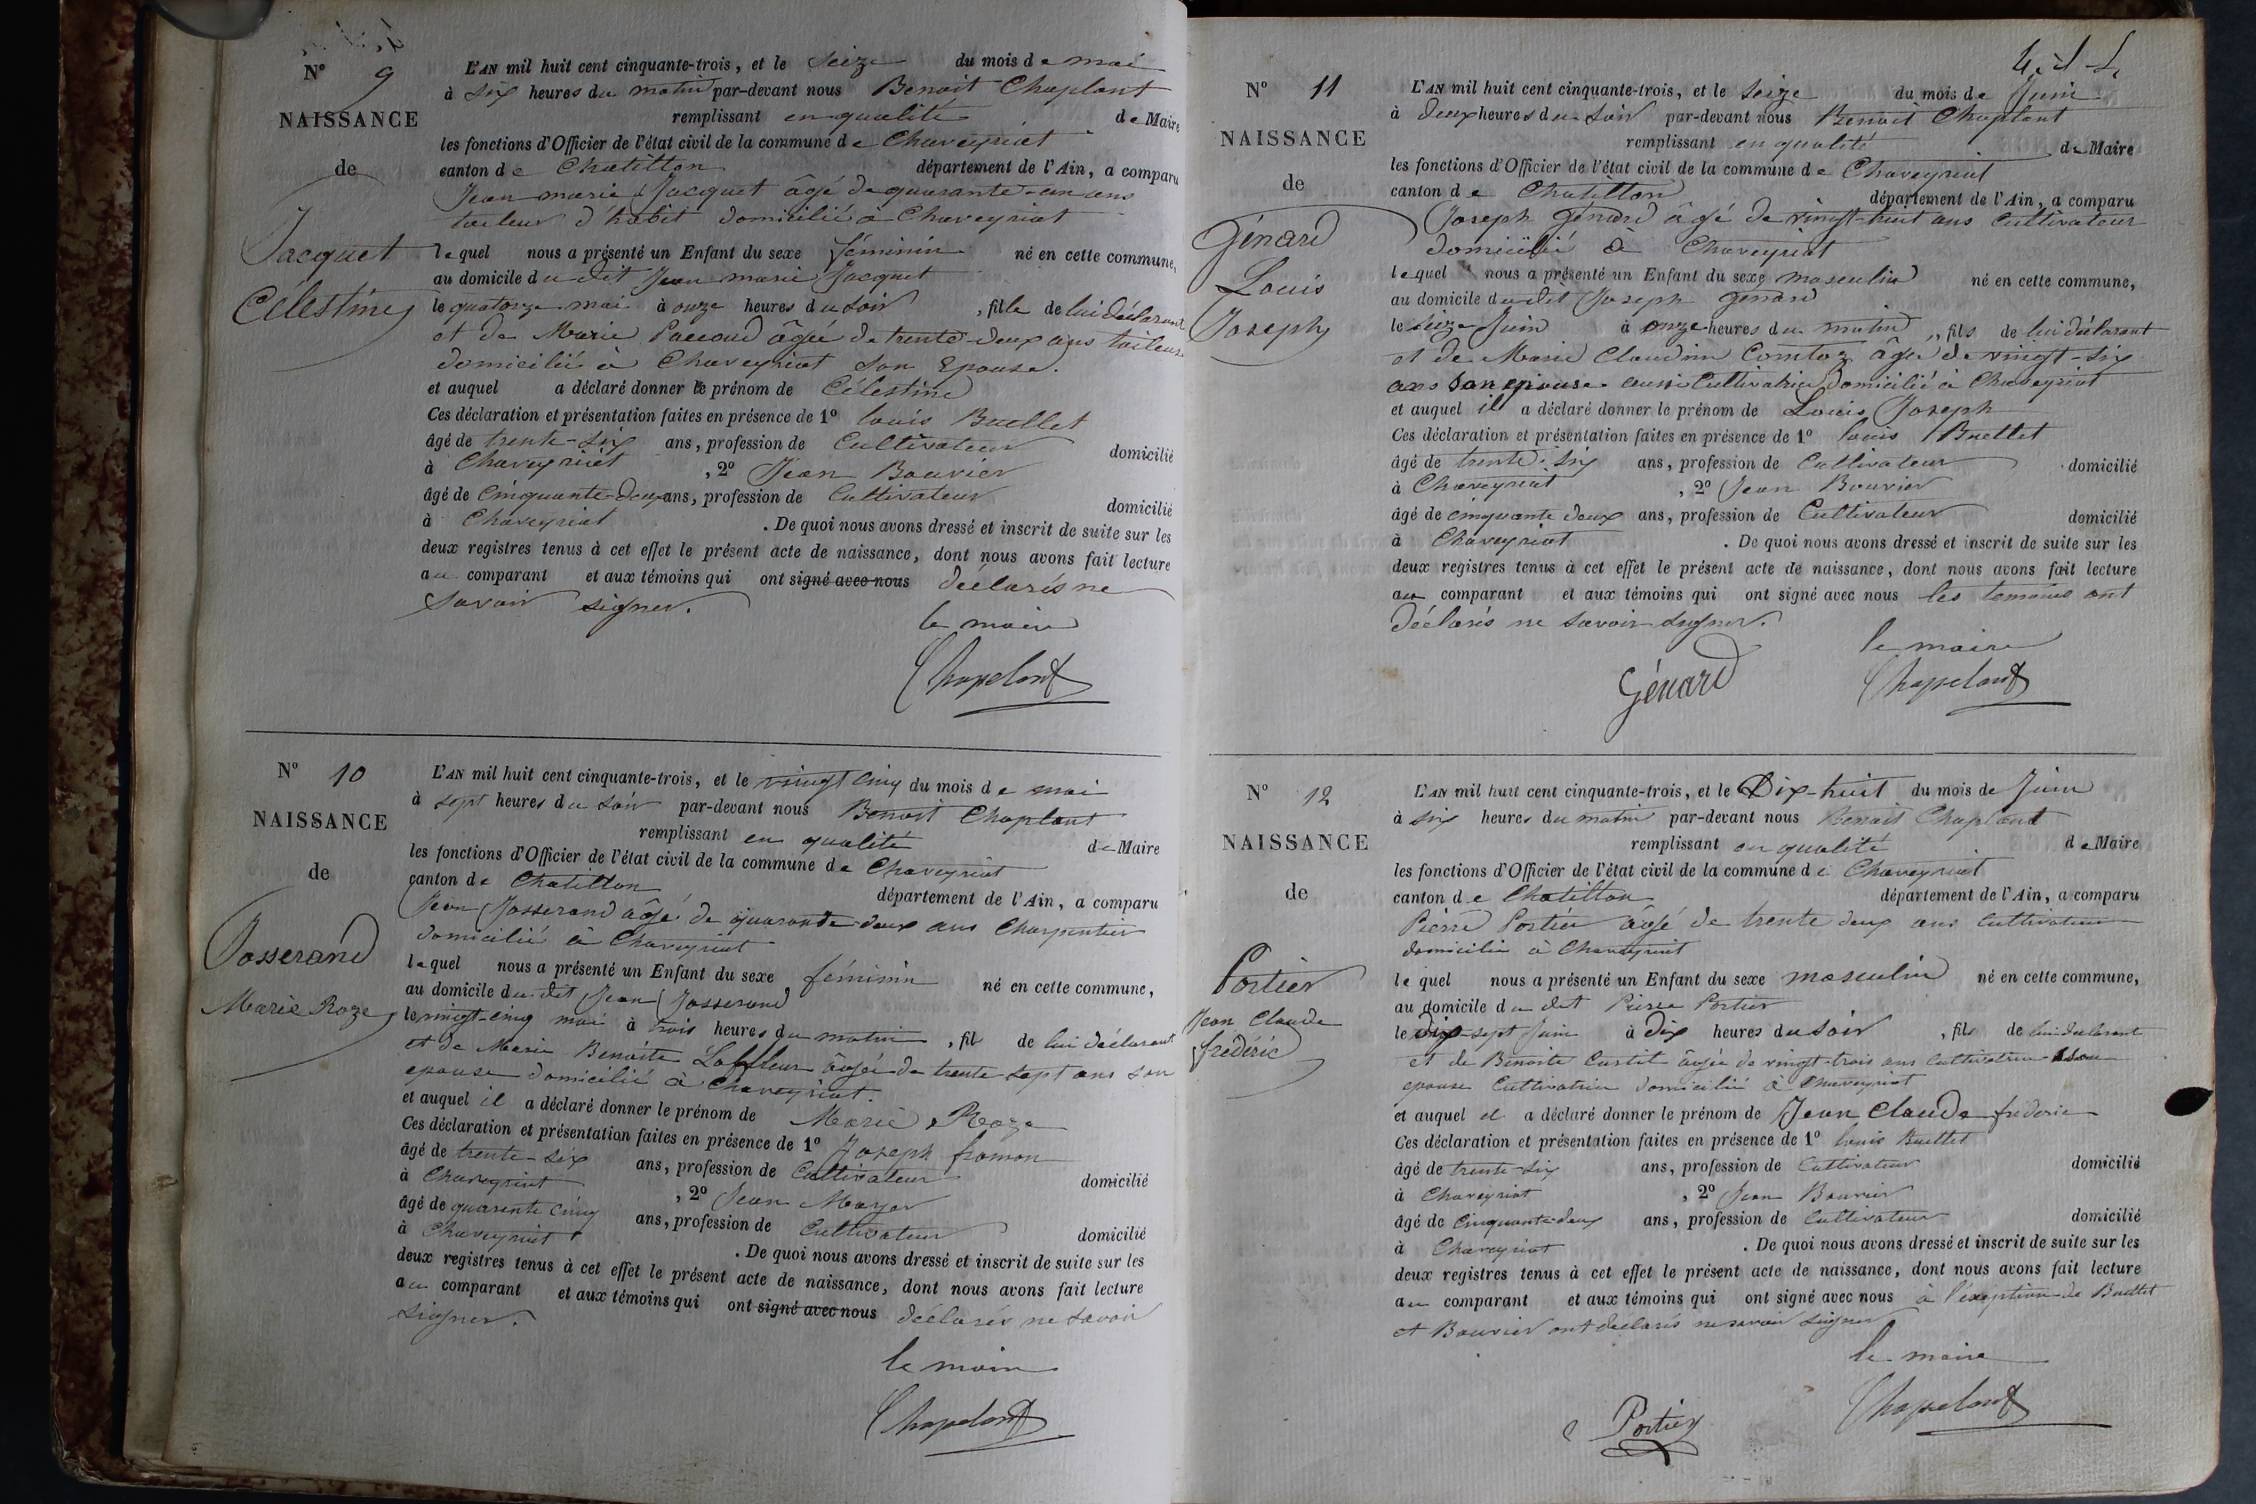 N° 9
NAISSANCE
de
Jacquet
Célestine
L'AN mil huit cent cinquante-trois, et le seize du mois de mai
à six heures du matin par-devant nous Benoit Chaplont
remplissant en qualité de Maire
les fonctions d'Officier de l'état civil de la commune de Chaveyriat
canton de Chatillon département de l'Ain, a comparu
Jean marie Jacquet âgé de quarante-un ans
tailleur d'habit domicilié à Chaveyriat
lequel nous a présenté un Enfant du sexe féminin né en cette commune,
au domicile du dit Jean marie Jacquet
le quatorze mai à onze heures du soir, fille de lui déclarant
et de Marie Paccoud âgée de trente-deux ans tailleuse
domicilié à Chaveyriat son Epouse.
et auquel a déclaré donner le prénom de Célestine
Ces déclaration et présentation faites en présence de 1° louis Buellet
âgé de trente-six ans, profession de Cultivateur domicilié
à Chaveyriat, 2° Jean Bouvier
âgé de Cinquante-deux ans, profession de Cultivateur domicilié
à Chaveyriat. De quoi nous avons dressé et inscrit de suite sur les
deux registres tenus à cet effet le présent acte de naissance, dont nous avons fait lecture
au comparant et aux témoins qui ont signé avec nous déclarés ne
savoir signer.
le maire
Chapelont
N° 10
NAISSANCE
de
Josserand
Marie Roze
L'AN mil huit cent cinquante-trois, et le vingt cinq du mois de mai
à sept heures du soir par-devant nous Benoit Chaplont
remplissant en qualité de Maire
les fonctions d'Officier de l'état civil de la commune de Chaveyriat
canton de Chatillon département de l'Ain, a comparu
Jean Josserand âgé de quarante-deux ans Charpentier
domicilié à Chaveyriat
lequel nous a présenté un Enfant du sexe féminin né en cette commune,
au domicile du dit Jean Josserand
le vingt-cinq mai à trois heures du matin, fil de lui déclarant
et de Marie Benoite âgée de trente sept ans son
epouse domicilié à Chaveyriat.
et auquel il a déclaré donner le prénom de Marie Roze
Ces déclaration et présentation faites en présence de 1° Joseph fromon
âgé de trente-six ans, profession de Cultivateur domicilié
à Chaveyriat, 2° Jean
âgé de quarante cinq ans, profession de Cultivateur domicilié
à Chaveyriat. De quoi nous avons dressé et inscrit de suite sur les
deux registres tenus à cet effet le présent acte de naissance, dont nous avons fait lecture
au comparant et aux témoins qui ont signé avec nous déclarés ne savoir
signer.
le maire
Chapelont
N° 11
NAISSANCE
de
Génard
Louis
Joseph
L'AN mil huit cent cinquante-trois, et le seize du mois de Juin
à deux heures du soir par-devant nous Benoit Chaplont
remplissant en qualité de Maire
les fonctions d'Officier de l'état civil de la commune de Chaveyriat
canton de Chatillon département de l'Ain, a comparu
Joseph Génard âgé de vingt-huit ans Cultivateur
domicilié à Chaveyriat
lequel nous a présenté un Enfant du sexe masculin né en cette commune,
au domicile du dit Joseph Génard
le seize Juin à onze heures du matin, fils de lui déclarant
et de Marie Claudine âgée de vingt-six
ans son epouse aussi Cultivatrice domicilié à Chaveyriat
et auquel il a déclaré donner le prénom de Louis Joseph
Ces déclaration et présentation faites en présence de 1° louis Buellet
âgé de trente-six ans, profession de Cultivateur domicilié
à Chaveyriat, 2° Jean Bouvier
âgé de cinquante deux ans, profession de Cultivateur domicilié
à Chaveyriat. De quoi nous avons dressé et inscrit de suite sur les
deux registres tenus à cet effet le présent acte de naissance, dont nous avons fait lecture
au comparant et aux témoins qui ont signé avec nous les temoins ont
déclarés ne savoir signer.
le maire
Génard Chapelont
N° 12
NAISSANCE
de
Portier
Jean Claude
frédéric
L'AN mil huit cent cinquante-trois, et le Dix-huit du mois de Juin
à six heures du matin par-devant nous Benoit Chaplont
remplissant en qualité de Maire
les fonctions d'Officier de l'état civil de la commune de Chaveyriat
canton de Chatillon département de l'Ain, a comparu
Pierre Portier âgé de trente deux ans Cultivateur
domicilié à Chaveyriat
lequel nous a présenté un Enfant du sexe masculin né en cette commune,
au domicile du dit Pierre Portier
le Dix-sept Juin à dix heures du soir, fils de lui déclarant
et de Benoite âgée de vingt-trois ans son
epouse Cultivatrice domicilié à Chaveyriat
et auquel il a déclaré donner le prénom de Jean Claude frederic
Ces déclaration et présentation faites en présence de 1° louis Buellet
âgé de trente-six ans, profession de Cultivateur domicilié
à Chaveyriat, 2° Jean Bouvier
âgé de Cinquante-deux ans, profession de Cultivateur domicilié
à Chaveyriat. De quoi nous avons dressé et inscrit de suite sur les
deux registres tenus à cet effet le présent acte de naissance, dont nous avons fait lecture
au comparant et aux témoins qui ont signé avec nous à l'exception de Buellet
et Bouvier ont déclarés ne savoir signer
le maire
Portier Chapelont